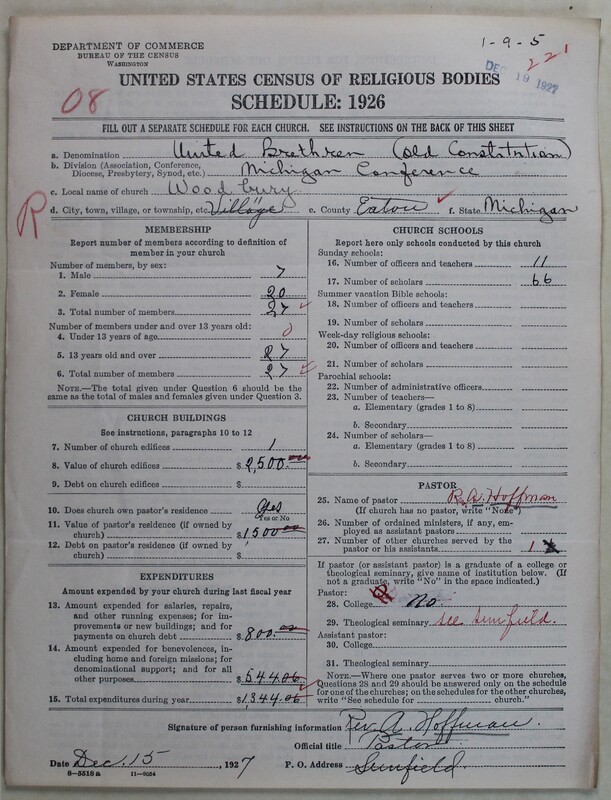 DEPARTMENT OF COMMERCE
BUREAU OF THE CENSUS
WASHINGTON
1-9-5
221
DEC 19 1927
08
UNITED STATES CENSUS OF RELIGIOUS BODIES
SCHEDULE: 1926
FILL OUT A SEPARATE SCHEDULE FOR EACH CHURCH. SEE INSTRUCTIONS ON THE BACK OF THIS SHEET
a. Denomination United Brethren (Old Constitution)
b. Division (Association, Conference, Diocese, Presbytery, Synod, etc.) Michigan Conference
c. Local name of church Woodbury
R
d. City, town, village, or township, etc. Village e. County Eaton f. State Michigan
MEMBERSHIP
Report number of members according to definition of
member in your church
Number of members, by sex:
1. Male 7
2. Female 20
3. Total number of members 27
Number of members under and over 13 years old:
4. Under 13 years of age 0
5. 13 years old and over 27
6. Total number of members 27
NOTE.—The total given under Question 6 should be the
same as the total of males and females given under Question 3.
CHURCH BUILDINGS
See instructions, paragraphs 10 to 12
7. Number of church edifices 1
8. Value of church edifices $2,500.00
9. Debt on church edifices $
10. Does church own pastor's residence? Yes
Yes or No
11. Value of pastor's residence (if owned by
church) $1,500.00
12. Debt on pastor's residence (if owned by
church) $
EXPENDITURES
Amount expended by your church during last fiscal year
13. Amount expended for salaries, repairs,
and other running expenses; for im-
provements or new buildings; and for
payments on church debt $800.00
14. Amount expended for benevolences, in-
cluding home and foreign missions; for
denominational support; and for all
other purposes $544.06
15. Total expenditures during year $1,344.06
CHURCH SCHOOLS
Report here only schools conducted by this church
Sunday schools:
16. Number of officers and teachers 11
17. Number of scholars 66
Summer vacation Bible schools:
18. Number of officers and teachers
19. Number of scholars
Week-day religious schools:
20. Number of officers and teachers
21. Number of scholars
Parochial schools:
22. Number of administrative officers
23. Number of teachers—
a. Elementary (grades 1 to 8)
b. Secondary
24. Number of scholars—
a. Elementary (grades 1 to 8)
b. Secondary
PASTOR
25. Name of pastor R. A. Hoffman
(If church has no pastor, write "None")
26. Number of ordained ministers, if any, em-
ployed as assistant pastors
27. Number of other churches served by the
pastor or his assistants 1
If pastor (or assistant pastor) is a graduate of a college or
theological seminary, give name of institution below. (If
not a graduate, write "No" in the space indicated.)
Pastor:
28. College No.
29. Theological seminary See Sunfield.
Assistant pastor:
30. College
31. Theological seminary
NOTE.—Where one pastor serves two or more churches,
Questions 28 and 29 should be answered only on the schedule
for one of the churches; on the schedules for the other churches,
write "See schedule for church."
Signature of person furnishing information Rev. A. Hoffman.
Official title Pastor
Date Dec. 15, 1927 P. O. Address Sunfield
8-5518a 11-9054